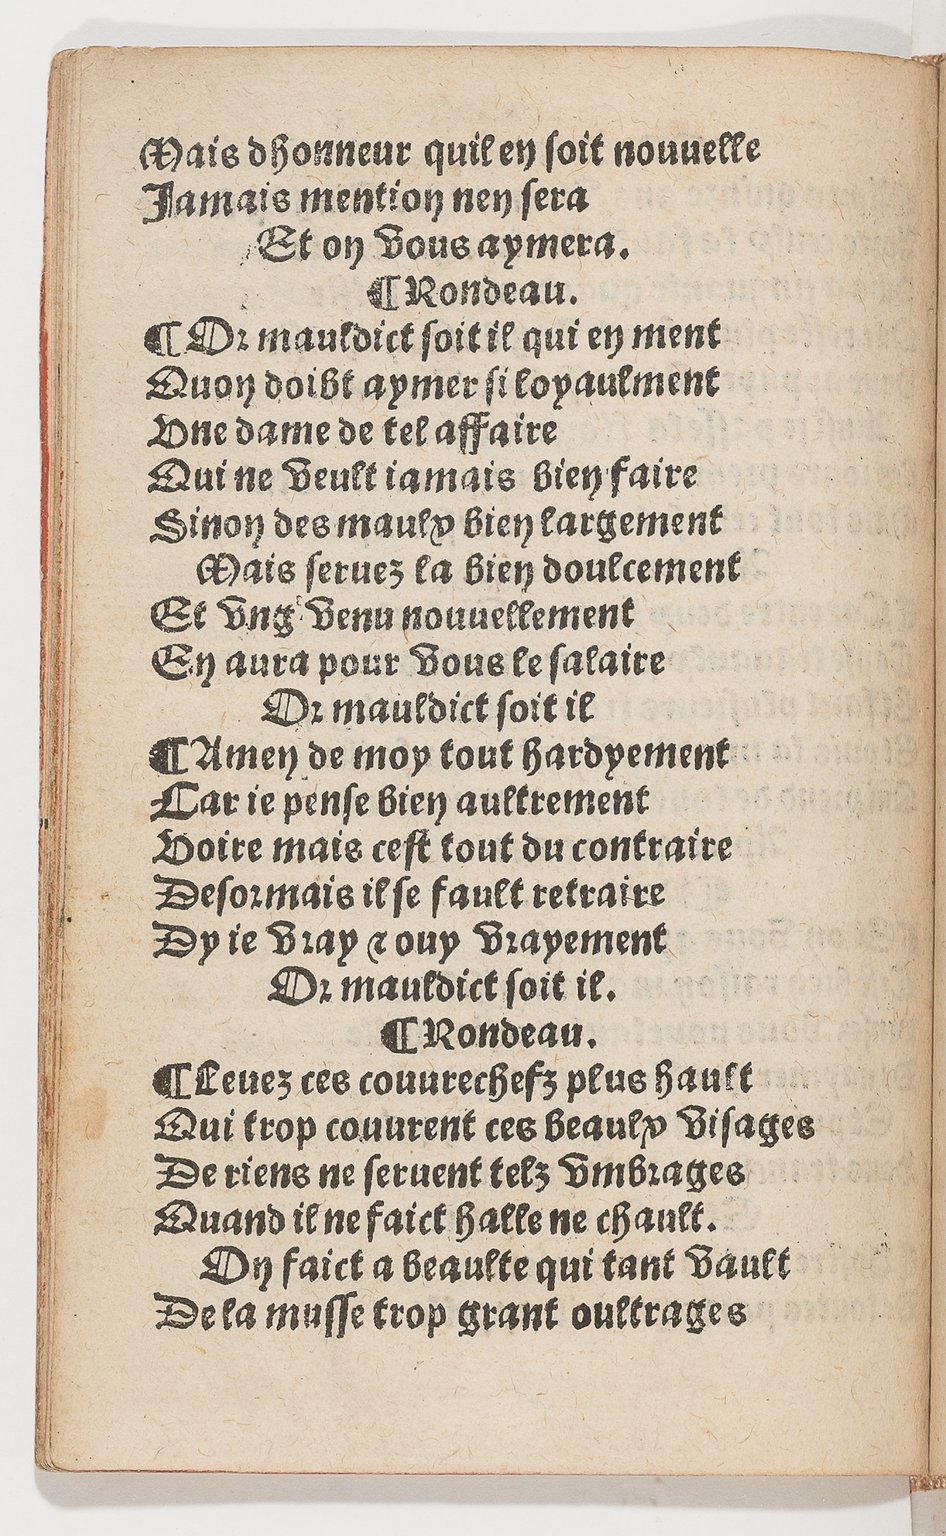 Mais dhonneur quil en soit nouuelle
Jamais mention nen sera
Et on vous aymera.
¶ Rondeau.
¶ Or mauldict soit il qui en ment
Quon doibt aymer si loyaulment
Vne dame de tel affaire
Qui ne veult iamais bien faire
Sinon des maulx bien largement
Mais seruez la bien doulcement
Et vng venu nouuellement
En aura pour vous le salaire
Or mauldict soit il
¶ Amen de moy tout hardyement
Car ie pense bien aultrement
Voire mais cest tout du contraire
Desormais il se fault retraire
Dy ie vray ⁊ ouy vrayement
Or mauldict soit il.
¶ Rondeau.
¶ Leuez ces couurechefz plus hault
Qui trop couurent ces beaulx visages
De riens ne seruent telz vmbrages
Quand il ne faict halle ne chault.
On faict a beaulte qui tant vault
De la musse trop grant oultrages